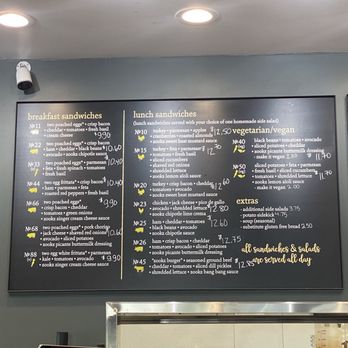 breakfast sandwiches
№11 two poached eggs* • crispy bacon
• cheddar • tomatoes • fresh basil
• cream cheese 9.90
№22 two poached eggs* • crispy bacon
• ham • cheddar • black beans 10.60
• avocado • zooks chipotle sauce
№33 two poached eggs* • prosciutto 10.40
• feta • fresh spinach • tomatoes
• fresh basil
№44 two egg frittata* • crispy bacon
• parmesan • feta
• roasted red peppers • fresh basil
№66 two poached eggs* • crispy bacon
• cheddar 9.90
• tomatoes • green onions
• zooks zinger cream cheese sauce
№68 two poached eggs* • pork chorizo
• jack cheese • shaved red onions
• avocado • sliced potatoes
• zooks picante buttermilk dressing
№88 two egg white frittata* • parmesan
• kale • tomatoes • avocado 9.90
• zooks zinger cream cheese sauce
lunch sandwiches
(lunch sandwiches served with your choice of one homemade side salad)
№10 turkey • parmesan • apples 12.50
• cranberries • roasted almonds
• zooks sweet heat mustard sauce
№15 turkey • feta • parmesan
• sliced cucumbers
• shaved red onions
• shredded lettuce
• zooks lemon aioli sauce
№20 turkey • crispy bacon • cheddar
• tomatoes • avocado 12.60
• zooks sweet heat mustard sauce
№23 chicken • jack cheese • pico de gallo
• avocado • shredded lettuce 12.80
• zooks chipotle sauce
№25 ham • cheddar • tomatoes 12.60
• black beans • avocado
• zooks chipotle sauce
№26 ham • crispy bacon • cheddar
• tomatoes • sliced potatoes 12.75
• zooks picante buttermilk dressing
№45 "zooks burger" • seasoned ground beef
• cheddar • tomatoes • sliced dill pickles
• shredded lettuce • zooks bang bang sauce
vegetarian/vegan
№40 black beans • tomatoes • avocado
• sliced potatoes • fresh basil
• zooks picante buttermilk dressing
- make it vegan 11.70
№50 sliced potatoes • feta • parmesan
• fresh basil • sliced cucumbers
• tomatoes • shredded lettuce 11.70
• zooks lemon aioli sauce
- make it vegan 2.00
extras
- additional side salads 3.75
- potato sidekick 4.75
- soup (seasonal)
- substitute gluten free bread 2.50
all sandwiches & salads
are served all day